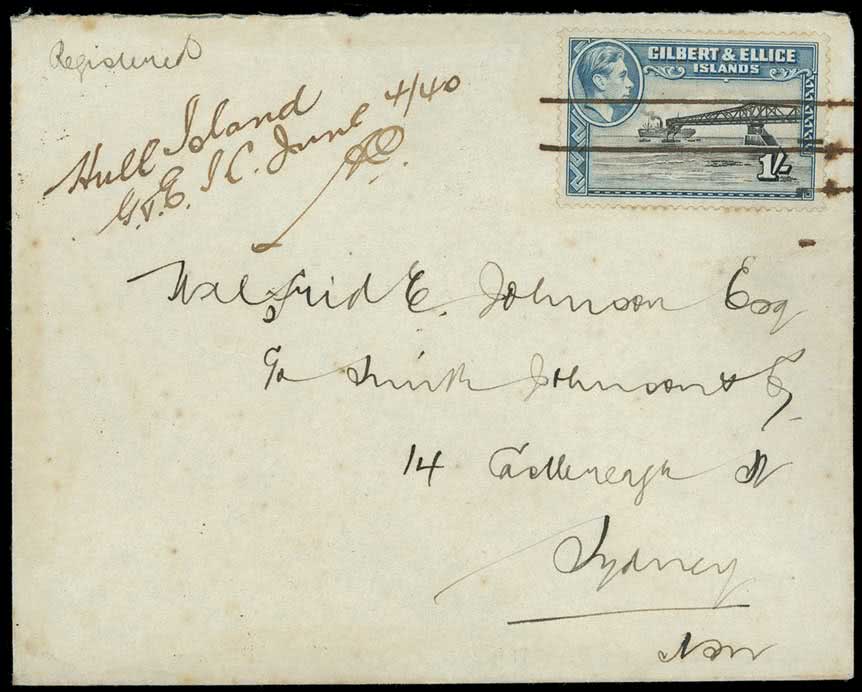 Registered
GILBERT & ELLICE
ISLANDS
1/-
Hull Island
G. & E. I C. June 4/40
Walfrid E. Johnson Esq
c/o Smith Johnson & Co
14 Castlereagh St
Sydney
NSW